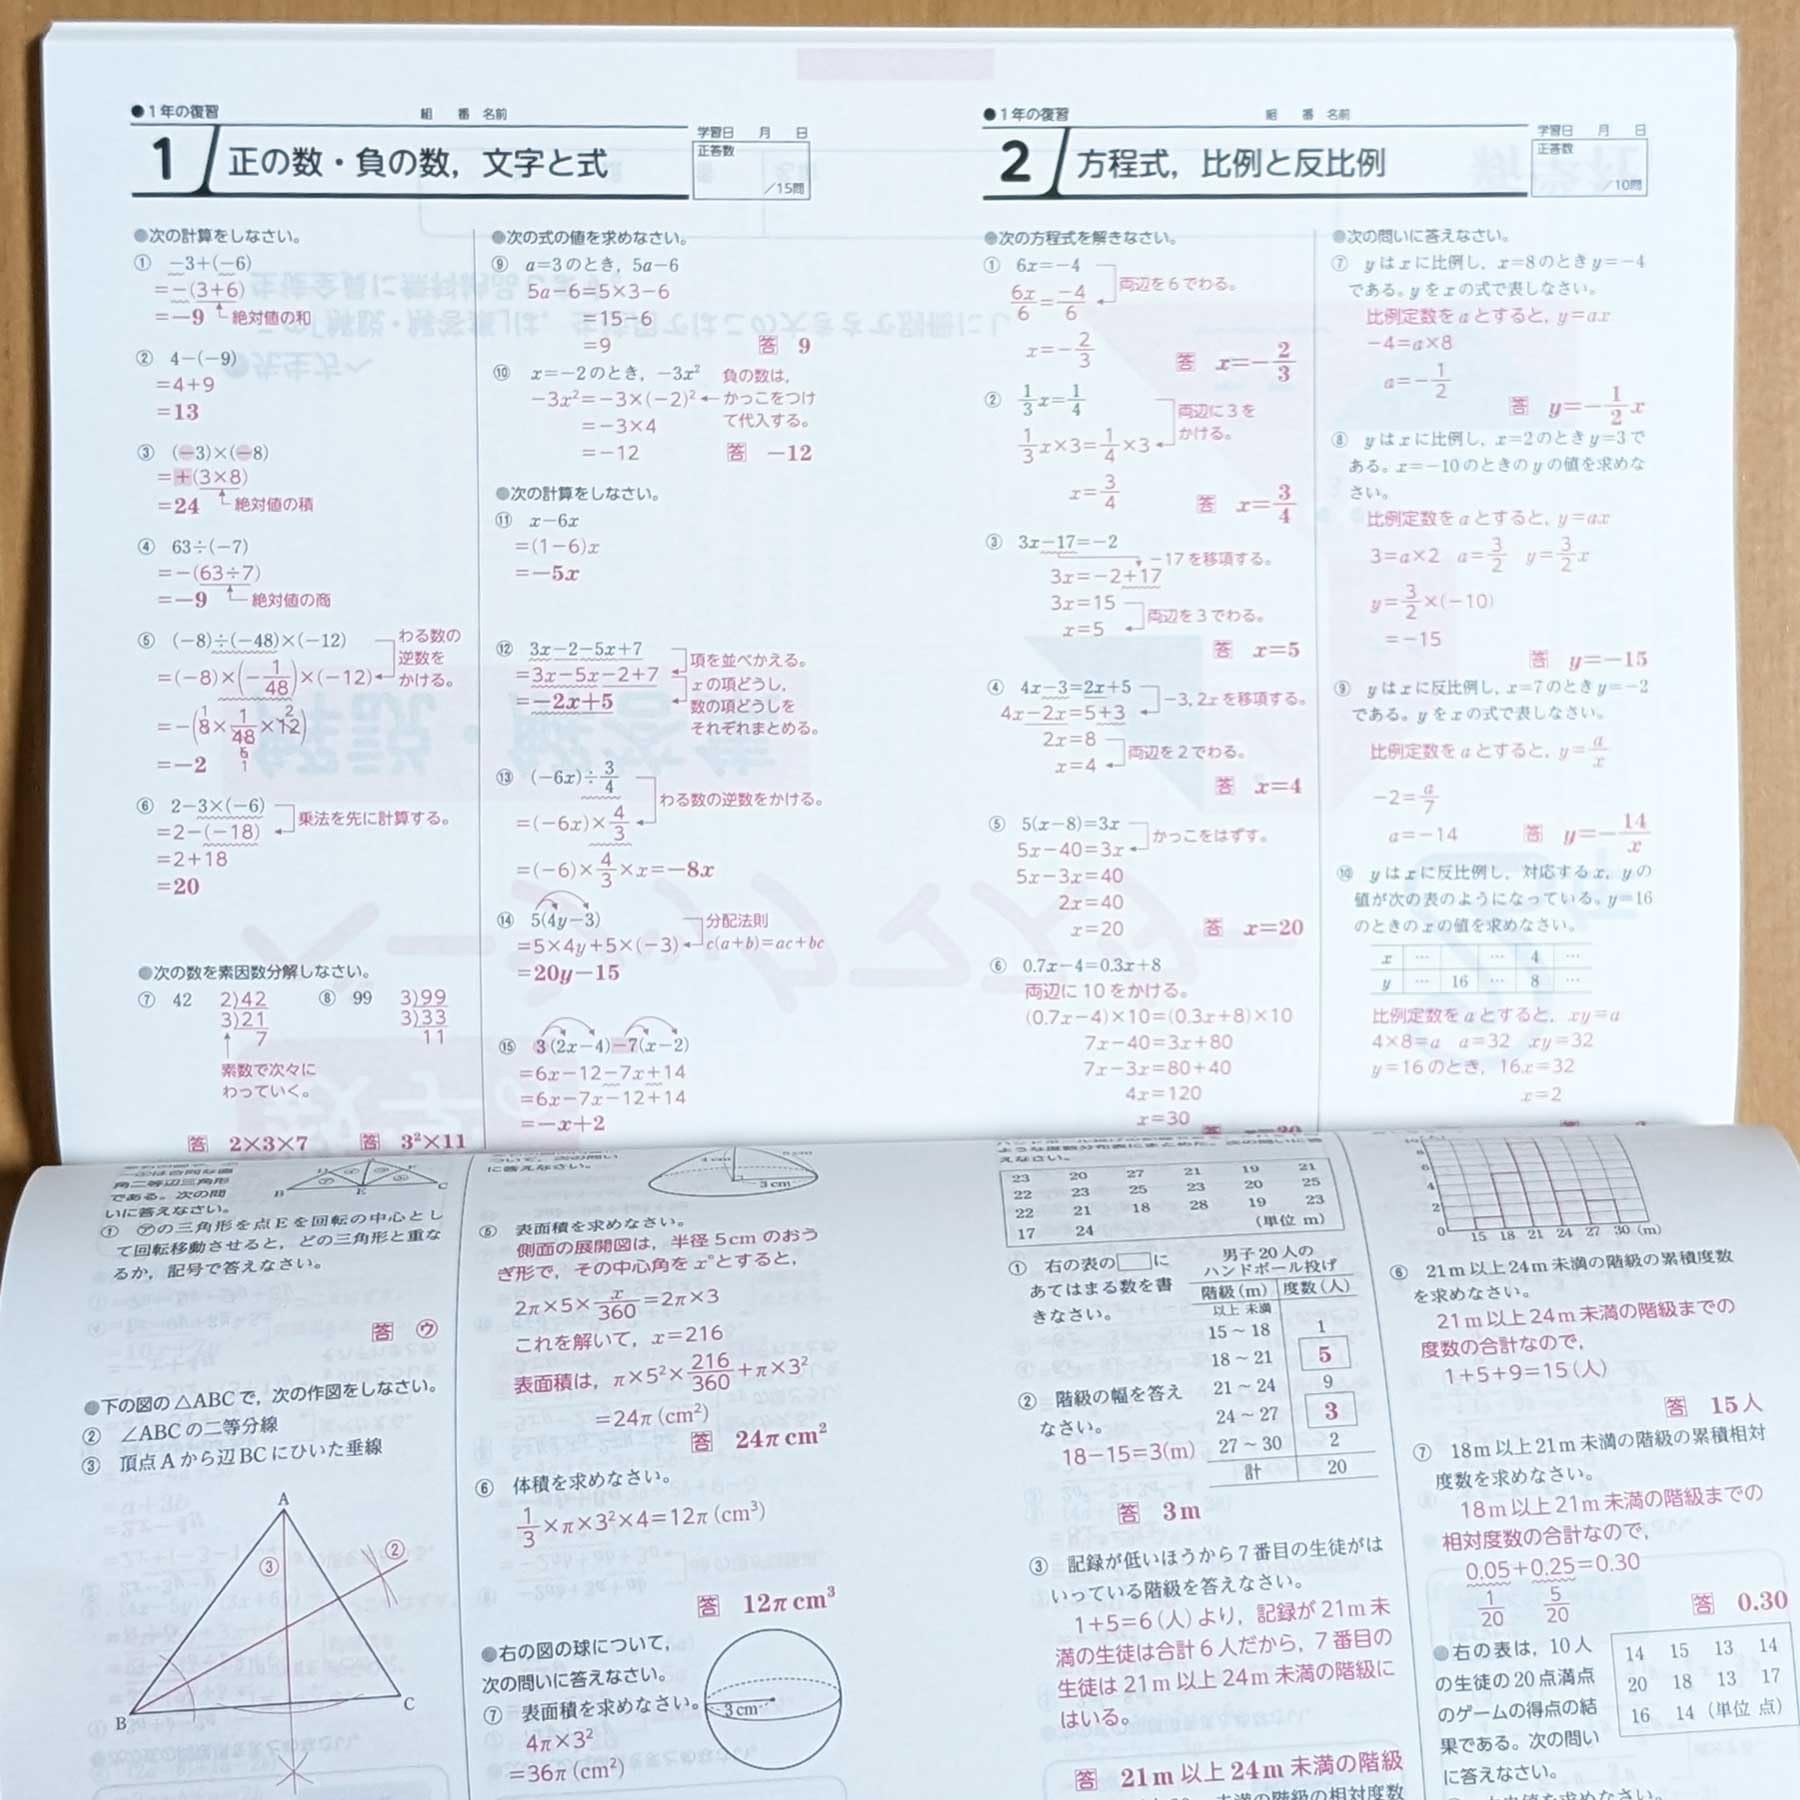 ●1年の復習
組 番 名前
1 正の数・負の数，文字と式
学習日 月 日
正答数
／15問
●次の計算をしなさい。
① −3+(−6)
=−(3+6)
=−9 絶対値の和
② 4−(−9)
=4+9
=13
③ (−3)×(−8)
=+(3×8)
=24 絶対値の積
④ 63÷(−7)
=−(63÷7)
=−9 絶対値の商
⑤ (−8)÷(−48)×(−12) わる数の
逆数を
=(−8)×(−1/48)×(−12) かける。
=−(8×1/48×12)
=−2
⑥ 2−3×(−6)
=2−(−18) 乗法を先に計算する。
=2+18
=20
●次の数を素因数分解しなさい。
⑦ 42 2)42
3)21
7
素数で次々に
わっていく。
答 2×3×7
⑧ 99 3)99
3)33
11
答 3²×11
●次の式の値を求めなさい。
⑨ a=3のとき，5a−6
5a−6=5×3−6
=15−6
=9 答 9
⑩ x=−2のとき，−3x² 負の数は，
−3x²=−3×(−2)² かっこをつけ
=−3×4 て代入する。
=−12 答 −12
●次の計算をしなさい。
⑪ x−6x
=(1−6)x
=−5x
⑫ 3x−2−5x+7
=3x−5x−2+7 項を並べかえる。
=−2x+5 xの項どうし，
数の項どうしを
それぞれまとめる。
⑬ (−6x)÷3/4
わる数の逆数をかける。
=(−6x)×4/3
=(−6)×4/3×x=−8x
⑭ 5(4y−3) 分配法則
=5×4y+5×(−3) c(a+b)=ac+bc
=20y−15
⑮ 3(2x−4)−7(x−2)
=6x−12−7x+14
=6x−7x−12+14
=−x+2
●1年の復習
組 番 名前
2 方程式，比例と反比例
学習日 月 日
正答数
／10問
●次の方程式を解きなさい。
① 6x=−4
6x/6=−4/6 両辺を6でわる。
x=−2/3
答 x=−2/3
② 1/3x=1/4
両辺に3を
かける。
1/3x×3=1/4×3
x=3/4
答 x=3/4
③ 3x−17=−2
−17を移項する。
3x=−2+17
3x=15
両辺を3でわる。
x=5
答 x=5
④ 4x−3=2x+5
4x−2x=5+3 −3, 2xを移項する。
2x=8
両辺を2でわる。
x=4
答 x=4
⑤ 5(x−8)=3x
かっこをはずす。
5x−40=3x
5x−3x=40
2x=40
x=20 答 x=20
⑥ 0.7x−4=0.3x+8
両辺に10をかける。
(0.7x−4)×10=(0.3x+8)×10
7x−40=3x+80
7x−3x=80+40
4x=120
x=30
●次の問いに答えなさい。
⑦ yはxに比例し，x=8のときy=−4
である。yをxの式で表しなさい。
比例定数をaとすると，y=ax
−4=a×8
a=−1/2
答 y=−1/2 x
⑧ yはxに比例し，x=2のときy=3で
ある。x=−10のときのyの値を求めな
さい。
比例定数をaとすると，y=ax
3=a×2 a=3/2 y=3/2x
y=3/2×(−10)
=−15
答 y=−15
⑨ yはxに反比例し，x=7のときy=−2
である。yをxの式で表しなさい。
比例定数をaとすると，y=a/x
−2=a/7
a=−14 答 y=−14/x
⑩ yはxに反比例し，対応するx，yの
値が次の表のようになっている。y=16
のときのxの値を求めなさい。
x … … 4 …
y … 16 … 8 …
比例定数をaとすると，xy=a
4×8=a a=32 xy=32
y=16のとき，16x=32
x=2
角二等辺三角形
である。次の問
いに答えなさい。
B E C
① ㋐の三角形を点Eを回転の中心とし
て回転移動させると，どの三角形と重な
るか，記号で答えなさい。
答 ㋒
●下の図の△ABCで，次の作図をしなさい。
② ∠ABCの二等分線
③ 頂点Aから辺BCにひいた垂線
A
③
②
B
C
に答えなさい。
3cm
⑤ 表面積を求めなさい。
側面の展開図は，半径5cmのおう
ぎ形で，その中心角をx°とすると，
2π×5×x/360=2π×3
これを解いて，x=216
表面積は，π×5²×216/360+π×3²
=24π(cm²)
答 24πcm²
⑥ 体積を求めなさい。
1/3×π×3²×4=12π(cm³)
答 12πcm³
●右の図の球について，
次の問いに答えなさい。
⑦ 表面積を求めなさい。
4π×3²
=36π(cm²)
3cm
えなさい。
23 20 27 21 19 21
22 23 25 23 20 25
22 21 18 28 19 23
17 24 (単位 m)
① 右の表の□に
あてはまる数を書
きなさい。
男子20人の
ハンドボール投げ
階級(m) 度数(人)
以上 未満
15～18 1
18～21 5
21～24 9
24～27 3
27～30 2
計 20
② 階級の幅を答え
なさい。
18−15=3(m)
答 3m
③ 記録が低いほうから7番目の生徒がは
いっている階級を答えなさい。
1+5=6(人)より，記録が21m未
満の生徒は合計6人だから，7番目の
生徒は21m以上24m未満の階級に
はいる。
答 21m以上24m未満の階級
未満の階級の相対度数
8
6
4
2
0 15 18 21 24 27 30 (m)
⑥ 21m以上24m未満の階級の累積度数
を求めなさい。
21m以上24m未満の階級までの
度数の合計なので，
1+5+9=15(人)
答 15人
⑦ 18m以上21m未満の階級の累積相対
度数を求めなさい。
18m以上21m未満の階級までの
相対度数の合計なので，
0.05+0.25=0.30
1/20 5/20
答 0.30
●右の表は，10人
の生徒の20点満点
のゲームの得点の結
果である。次の問い
に答えなさい。
14 15 13 14
20 18 13 17
16 14 (単位 点)